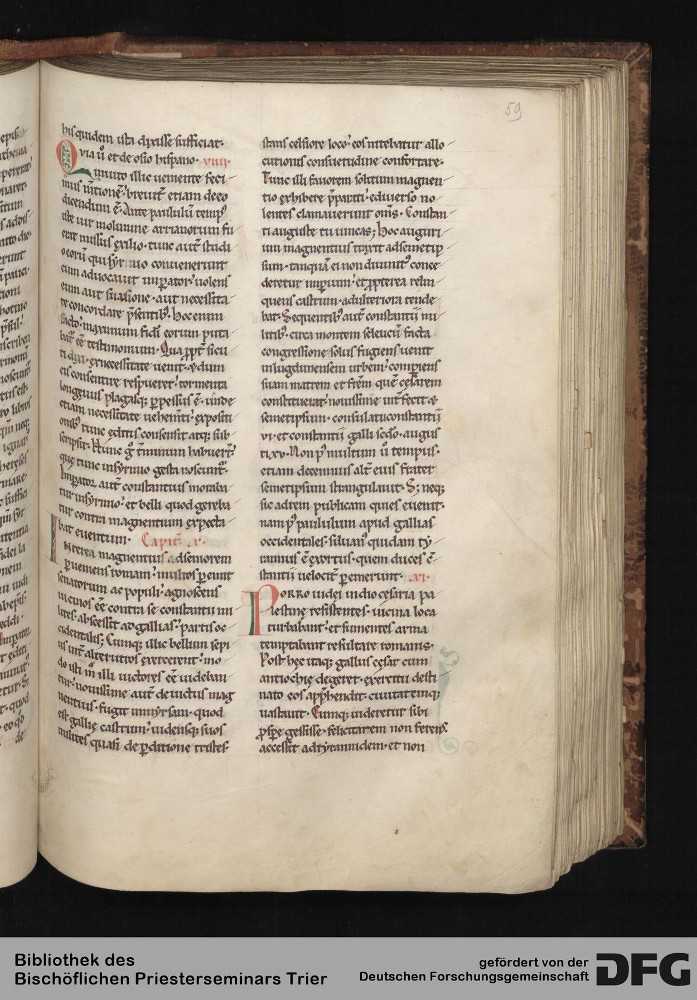 59
his quidem ista dixisse sufficiat.
Quia ū et de osio hispano. viiii.
inuito illic uemente feci
mus ntione: breuit etiam de eo
dicendum ē. Ante paululū temp
iste uir molimine arrianorum fu
erat missus exilio. tunc aut studi
o eorū qui syrmio conuenerunt
eum aduocauit impator. uolens
eum aut suasione. aut necessita
te concordare psentib. Hoc enim
facto maximum fidei eorum puta
bat ee testimonium. Qua ppt sicu
ti dixi. ex necessitate uenit.
cū consentire respueret. tormenta
longius plagasq; ppessus ē. unde
etiam necessitate uehemti. expositi
onib tunc editis consensit atq; sub
scripsit. Hunc g tminum habuert
que tunc in syrmio gesta noscunt.
Impator aut constantius moraba
tur in syrmio. et belli quod gereba
tur contra magnentium expecta
bat euentum. Capit x.
Interea magnentius ad semorem
pueniens romam. multos pemit
senatorum ac populi. agnoscens
in euios ee contra se constantii mi
lites. abscessit ad gallias. partis oc
cidentalis. Cumq; illic bellum sepi
us int alterutros exercerent. mo
do isti m illi uictores eē uideban
tur. nouissime aut deuictus mag
nentius. fugit in mursam. quod
est gallie castrum. uidensq; suos
milites quasi de pditione tristes.
stans celsiore loco. eos nitebatur allo
cutionis consuetudine confortare.
Tunc illi fauorem solitum magnen
tio exhibere ppati. e diuerso no
lentes clamauerunt oms. Constan
ti auguste tu uincas; Hoc auguri
um magnentius traxit ad semetip
sum. tanquā ei non diuinit conce
deretur impium. et ppterea relin
quens castrum. ad ulteriora tende
bat. Sequentib aut constantii mi
litib. circa montem seleucū facta
congressione. solus fugiens uenit
in lugdunensem urbem. compiens
suam matrem et frem quē cesarem
constituerat. nouissime intfecit
semetipsum. consulatu constantii
vi. et constantii galli secdo. augus
ti xv. Non p multum ū tempus.
etiam decennius alt eius frater
semetipsum strangulauit. S; neq;
sic adrem publicam quies euenit.
nam p paululum apud gallias
occidentales. siluan quidam ty
rannus ē exortus. quem duces
stantii uelocit pemerunt. xi.
Porro iudei in dio cesaria pa
lestine resistentes. uicina loca
turbabant. et sumentes arma
temptabant resultare romanis.
Post hec itaq; gallus cesar cum
antiochie degeret. exercitu desti
nato eos apphendit. ciuitatemq;
uastauit. Cumq; uideretur sibi
pspe gessisse. felicitatem non ferens
accessit ad tyrannidem. et non
Bibliothek des
Bischöflichen Priesterseminars Trier
gefördert von der
Deutschen Forschungsgemeinschaft
DFG